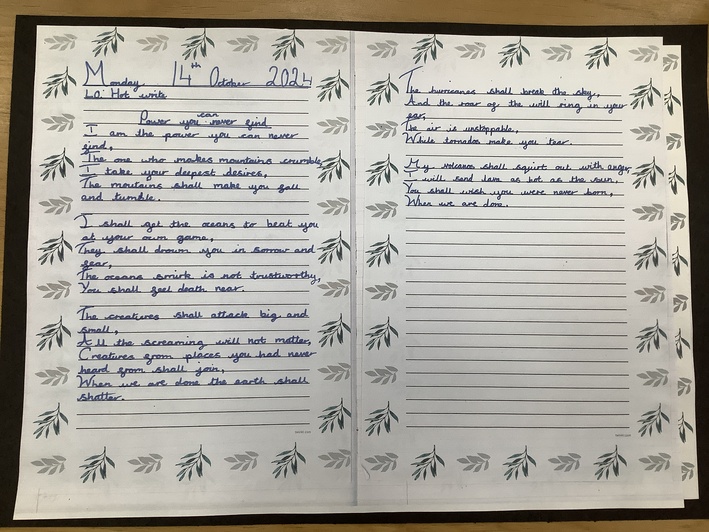 Monday 14th October 2024
L.O: Hot write
Power you can never find
I am the power you can never
find,
The one who makes mountains crumble,
I take your deepest desires,
The moutains shall make you fall
and tumble.
I shall get the oceans to beat you
at your own game,
They shall drown you in sorrow and
fear,
The oceans smirk is not trustworthy,
You shall feel death near.
The creatures shall attack big and
small,
All the screaming will not matter,
Creatures from places you had never
heard from shall join,
When we are done the earth shall
shatter.
The hurricanes shall break the sky,
And the roar of the will ring in your
ear,
The air is unstoppable,
While tornados make you tear.
My volcanoe shall squirt out with anger,
I will send lava as hot as the sun,
You shall wish you were never born,
When we are done.